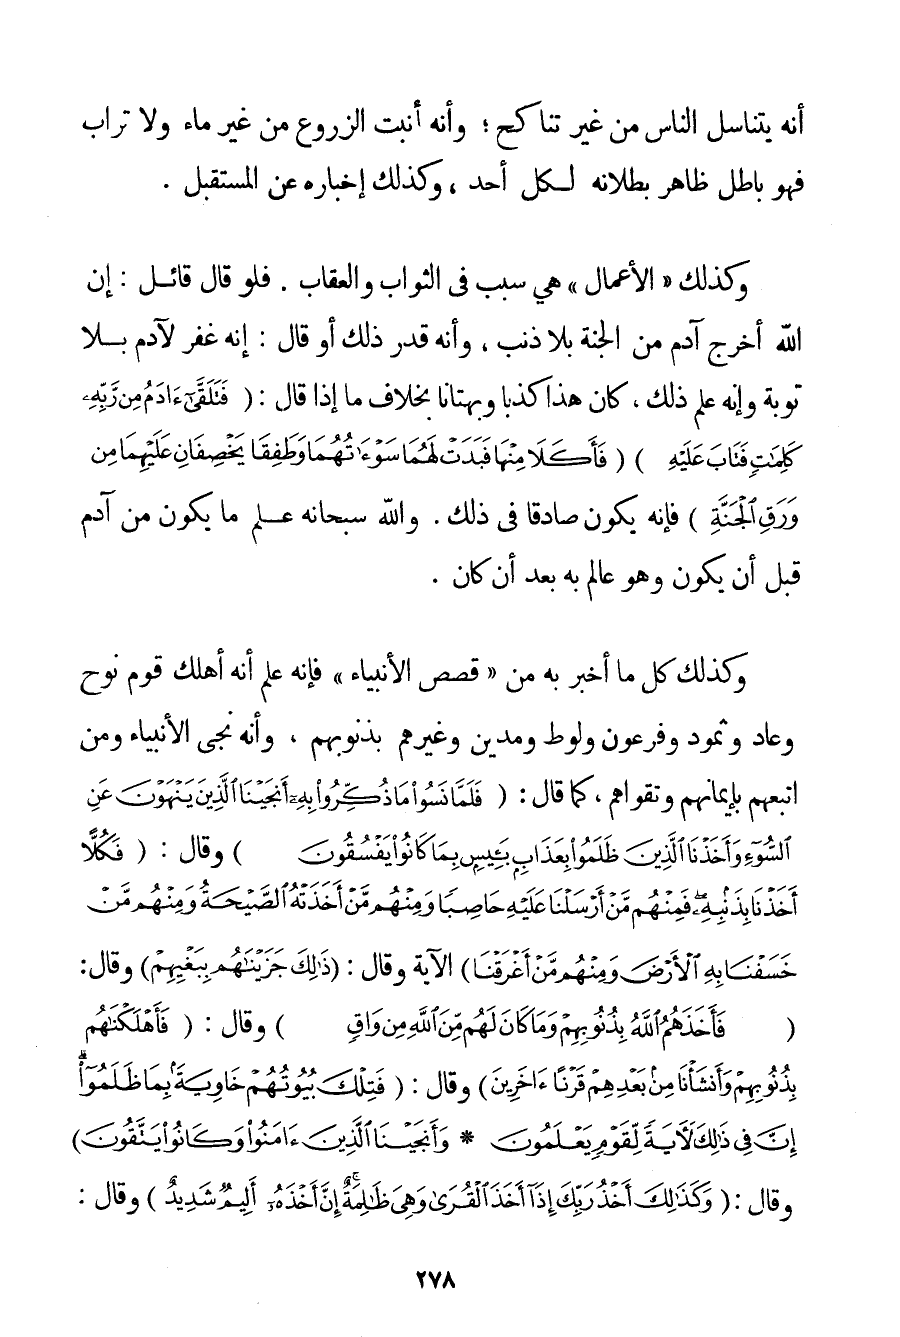 أنه يتناسل الناس من غير تناكح ؛ وأنه أنبت الزروع من غير ماء ولا تراب
فهو باطل ظاهر بطلانه لكل أحد ، وكذلك إخباره عن المستقبل .
وكذلك « الأعمال » هي سبب فى الثواب والعقاب . فلو قال قائل : إن
الله أخرج آدم من الجنة بلا ذنب ، وأنه قدر ذلك أو قال : إنه غفر لآدم بلا
توبة وإنه علم ذلك ، كان هذا كذبا وبهتانا بخلاف ما إذا قال : ( فَتَلَقَّىٰٓ ءَادَمُ مِن رَّبِّهِۦ
كَلِمَٰتٍ فَتَابَ عَلَيْهِ ) ( فَأَكَلَا مِنْهَا فَبَدَتْ لَهُمَا سَوْءَٰتُهُمَا وَطَفِقَا يَخْصِفَانِ عَلَيْهِمَا مِن
وَرَقِ ٱلْجَنَّةِ ) فإنه يكون صادقا فى ذلك . والله سبحانه علم ما يكون من آدم
قبل أن يكون وهو عالم به بعد أن كان .
وكذلك كل ما أخبر به من « قصص الأنبياء » فإنه علم أنه أهلك قوم نوح
وعاد وثمود وفرعون ولوط ومدين وغيرهم بذنوبهم ، وأنه نجى الأنبياء ومن
اتبعهم بإيمانهم وتقواهم ، كما قال : ( فَلَمَّا نَسُوا۟ مَا ذُكِّرُوا۟ بِهِۦٓ أَنجَيْنَا ٱلَّذِينَ يَنْهَوْنَ عَنِ
ٱلسُّوٓءِ وَأَخَذْنَا ٱلَّذِينَ ظَلَمُوا۟ بِعَذَابٍۭ بَـِٔيسٍۭ بِمَا كَانُوا۟ يَفْسُقُونَ ) وقال : ( فَكُلًّا
أَخَذْنَا بِذَنۢبِهِۦ ۖ فَمِنْهُم مَّنْ أَرْسَلْنَا عَلَيْهِ حَاصِبًا وَمِنْهُم مَّنْ أَخَذَتْهُ ٱلصَّيْحَةُ وَمِنْهُم مَّنْ
خَسَفْنَا بِهِ ٱلْأَرْضَ وَمِنْهُم مَّنْ أَغْرَقْنَا ) الآية وقال : ( ذَٰلِكَ جَزَيْنَٰهُم بِبَغْيِهِمْ ) وقال :
( فَأَخَذَهُمُ ٱللَّهُ بِذُنُوبِهِمْ وَمَا كَانَ لَهُم مِّنَ ٱللَّهِ مِن وَاقٍ ) وقال : ( فَأَهْلَكْنَٰهُم
بِذُنُوبِهِمْ وَأَنشَأْنَا مِنۢ بَعْدِهِمْ قَرْنًا ءَاخَرِينَ ) وقال : ( فَتِلْكَ بُيُوتُهُمْ خَاوِيَةًۢ بِمَا ظَلَمُوٓا۟ ۗ
إِنَّ فِى ذَٰلِكَ لَءَايَةً لِّقَوْمٍ يَعْلَمُونَ * وَأَنجَيْنَا ٱلَّذِينَ ءَامَنُوا۟ وَكَانُوا۟ يَتَّقُونَ )
وقال : ( وَكَذَٰلِكَ أَخْذُ رَبِّكَ إِذَآ أَخَذَ ٱلْقُرَىٰ وَهِىَ ظَٰلِمَةٌ ۚ إِنَّ أَخْذَهُۥٓ أَلِيمٌ شَدِيدٌ ) وقال :
٢٧٨